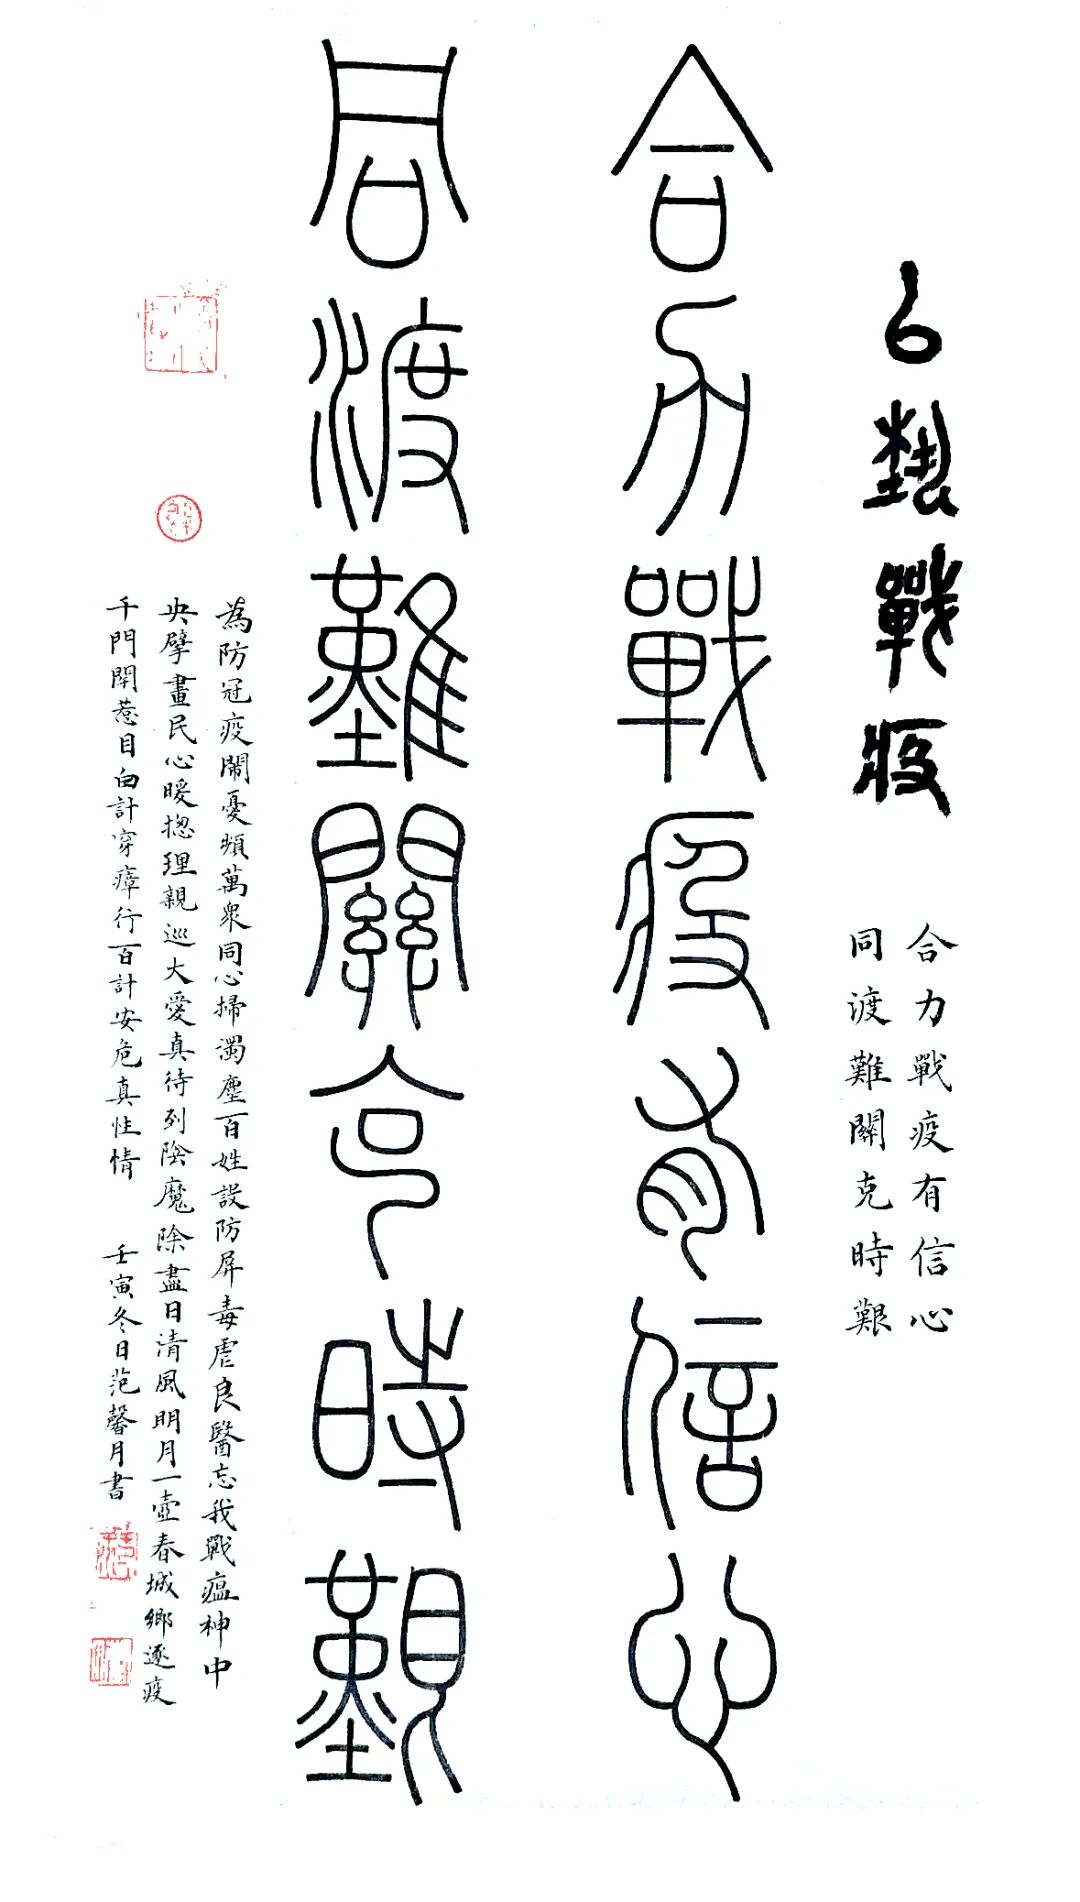 以埶戰疫
合力戰疫有信心
同渡難關克時艱
合力戰疫有信心
同渡難關克時艱
為防冠疫鬧憂頻萬衆同心掃濁塵百姓設防屏毒虐良醫忘我戰瘟神中
央擘畫民心暖揔理親巡大愛真待到陰魔除盡日清風明月一壺春城鄉逐疫
千門閉惹目白計穿瘴行百計安危真性情 壬寅冬日范馨月書